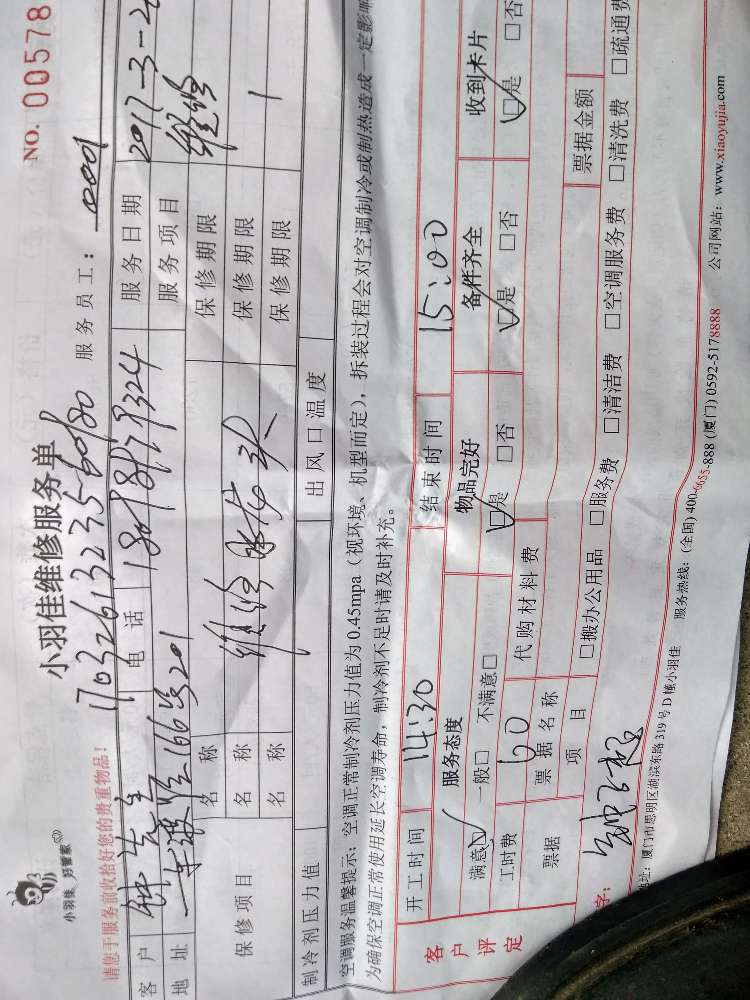 小羽佳 好管家
小羽佳维修服务单
NO. 00578
请您于服务前收拾好您的贵重物品!
服务员工: 0001
客户 钟先生 电话 服务日期 2017-3-2
地址 166号201 服务项目 维修
保修项目 名称 保修期限
名称 维修 保修期限
名称 保修期限
制冷剂压力值 出风口温度
空调服务温馨提示:空调正常制冷剂压力值为0.45mpa(视环境、机型而定),拆装过程会对空调制冷或制热造成一定影响
为确保空调正常使用延长空调寿命,制冷剂不足时请及时补充。
客户评定
开工时间 14:30 结束时间 15:00
服务态度 物品完好 备件齐全 收到卡片
满意☑ 一般□ 不满意□ ☑是 □否 ☑是 □否 ☑是 □否
工时费 60 代购材料费
票据 票据名称 票据金额
项目 □搬办公用品 □服务费 □清洁费 □空调服务费 □清洗费 □疏通费
字:
地址:厦门市思明区湖滨东路319号D楼小羽佳 服务热线:(全国)400-6655-888 (厦门)0592-5178888 公司网站:www.xiaoyujia.com